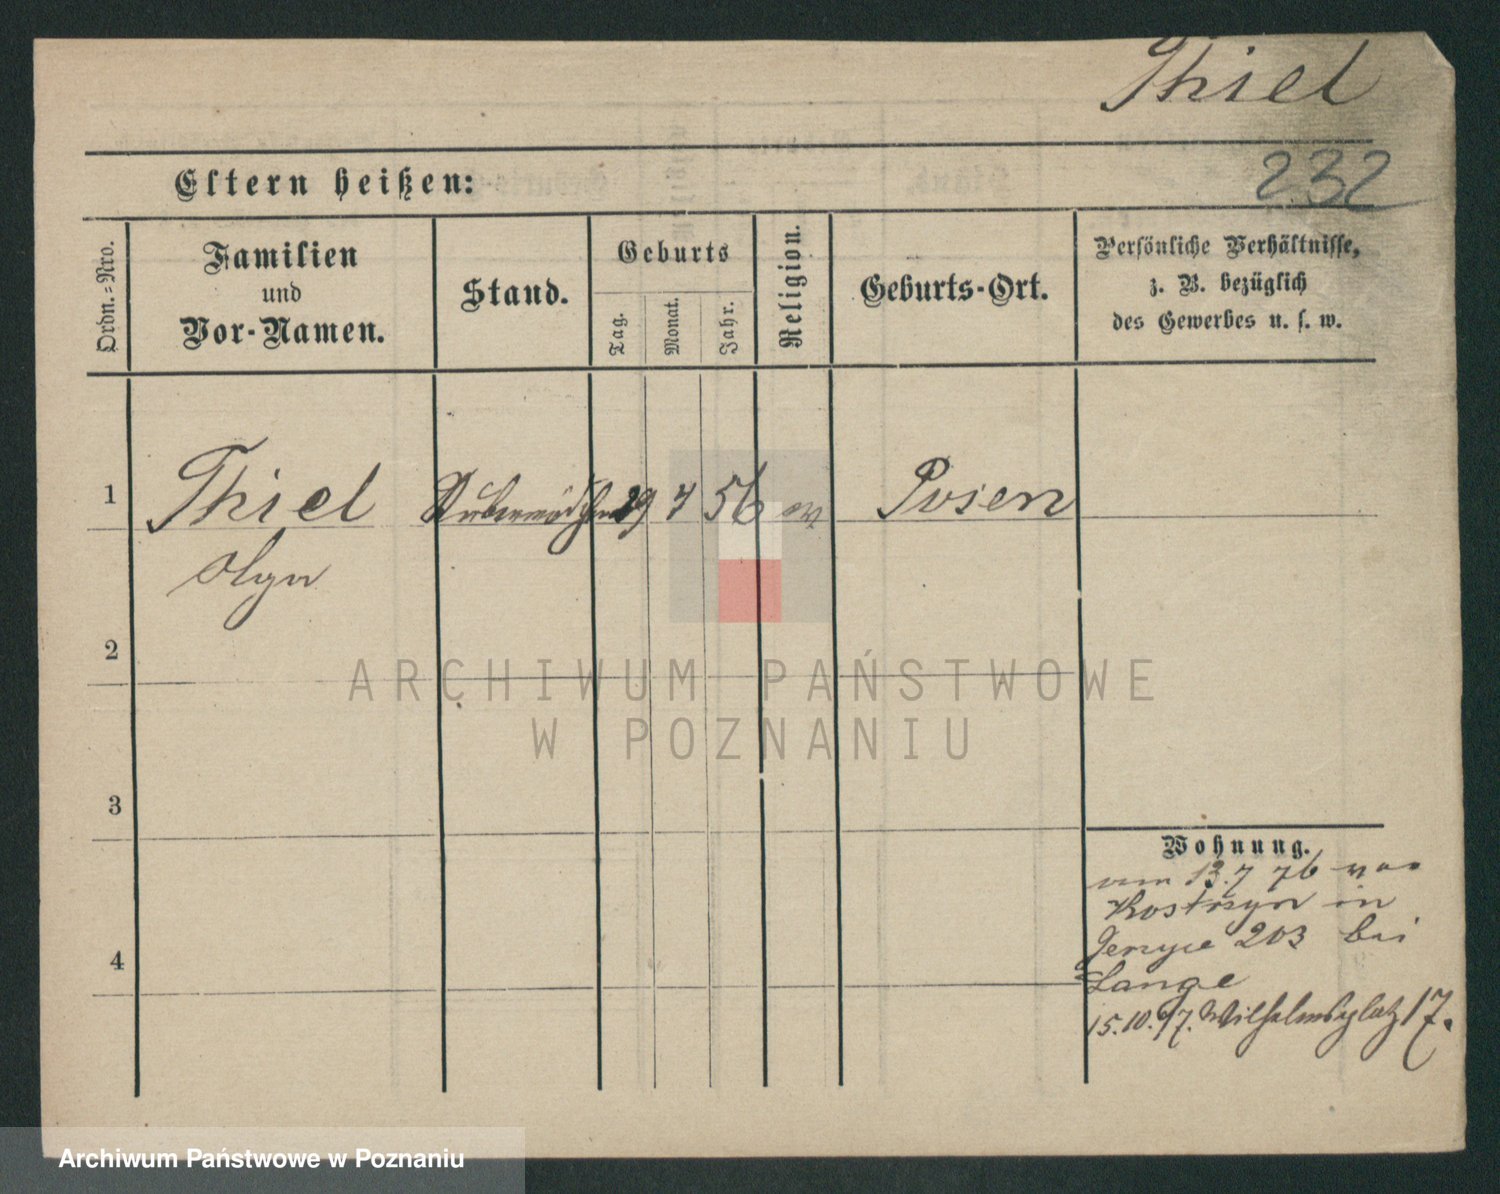 Thiel
232
Eltern heißen:
Ordn.=Nro.
Familien
und
Vor-Namen.
Stand.
Geburts
Tag.
Monat.
Jahr.
Religion.
Geburts-Ort.
Persönliche Verhältnisse,
z. B. bezüglich
des Gewerbes u. s. w.
1 Thiel Stubenmädchen 29 7 56 ev Posen
Olga
2
3
4
Wohnung.
13.7 76 von
Kostrzyn in
203 bei
Lange
15.10. 77. Wilhelmsplatz 17.
ARCHIWUM PAŃSTWOWE
W POZNANIU
Archiwum Państwowe w Poznaniu